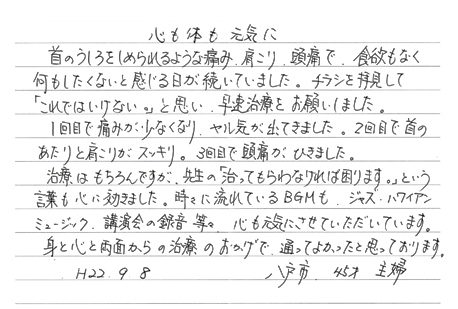 心も体も元気に
首のうしろをしめられるような痛み、肩こり、頭痛で、食欲もなく
何もしたくないと感じる日が続いていました。チラシを拝見して
「これではいけない。」と思い、早速治療をお願いしました。
1回目で痛みが少なくなり、ヤル気が出てきました。2回目で首の
あたりと肩こりがスッキリ。3回目で頭痛がひきました。
治療はもちろんですが、先生の「治ってもらわなければ困ります。」という
言葉も心に効きました。時々に流れているBGMも、ジャズ、ハワイアン
ミュージック、講演会の録音等々、心も元気にさせていただいています。
身と心と両面からの治療のおかげで、通ってよかったと思っております。
H22.9 8 八戸市 45才 主婦